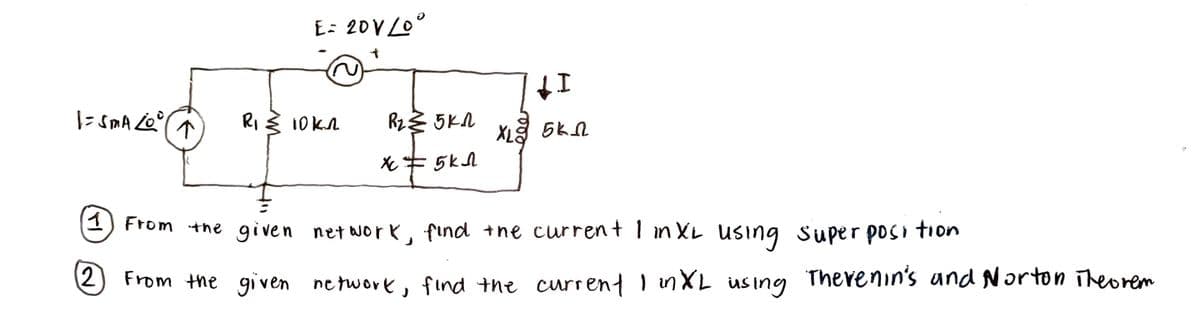 E= 20V∠0°
- +
↓I
I=5mA∠0° ↑ R1 10KΩ R2 5KΩ XL 5KΩ
Xc 5KΩ
① From the given network, find the current I in XL using superposition
② From the given network, find the current I in XL using Thevenin's and Norton Theorem